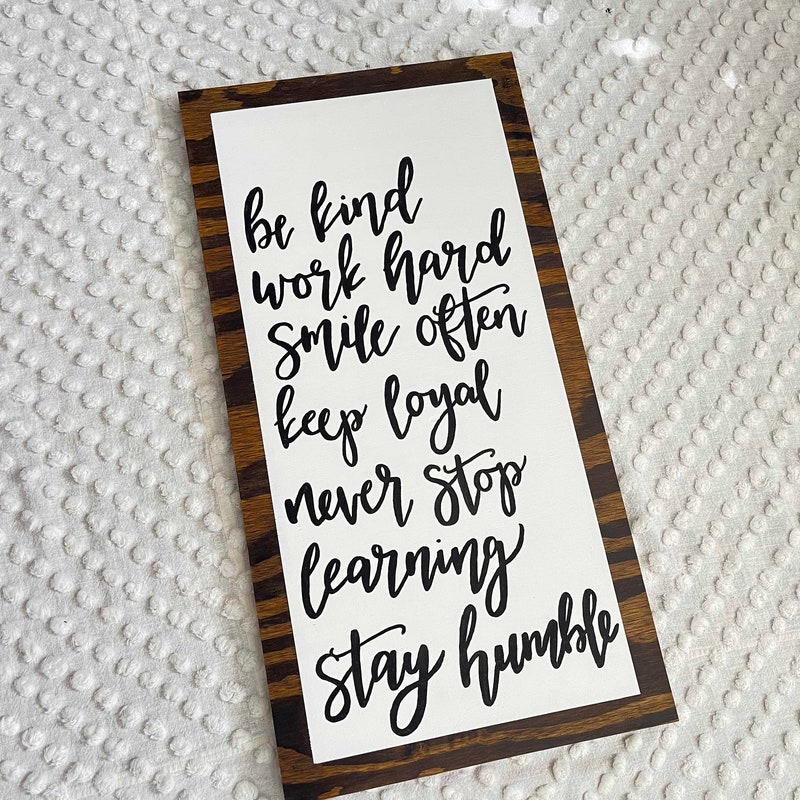 be kind
work hard
smile often
keep loyal
never stop
learning
stay humble